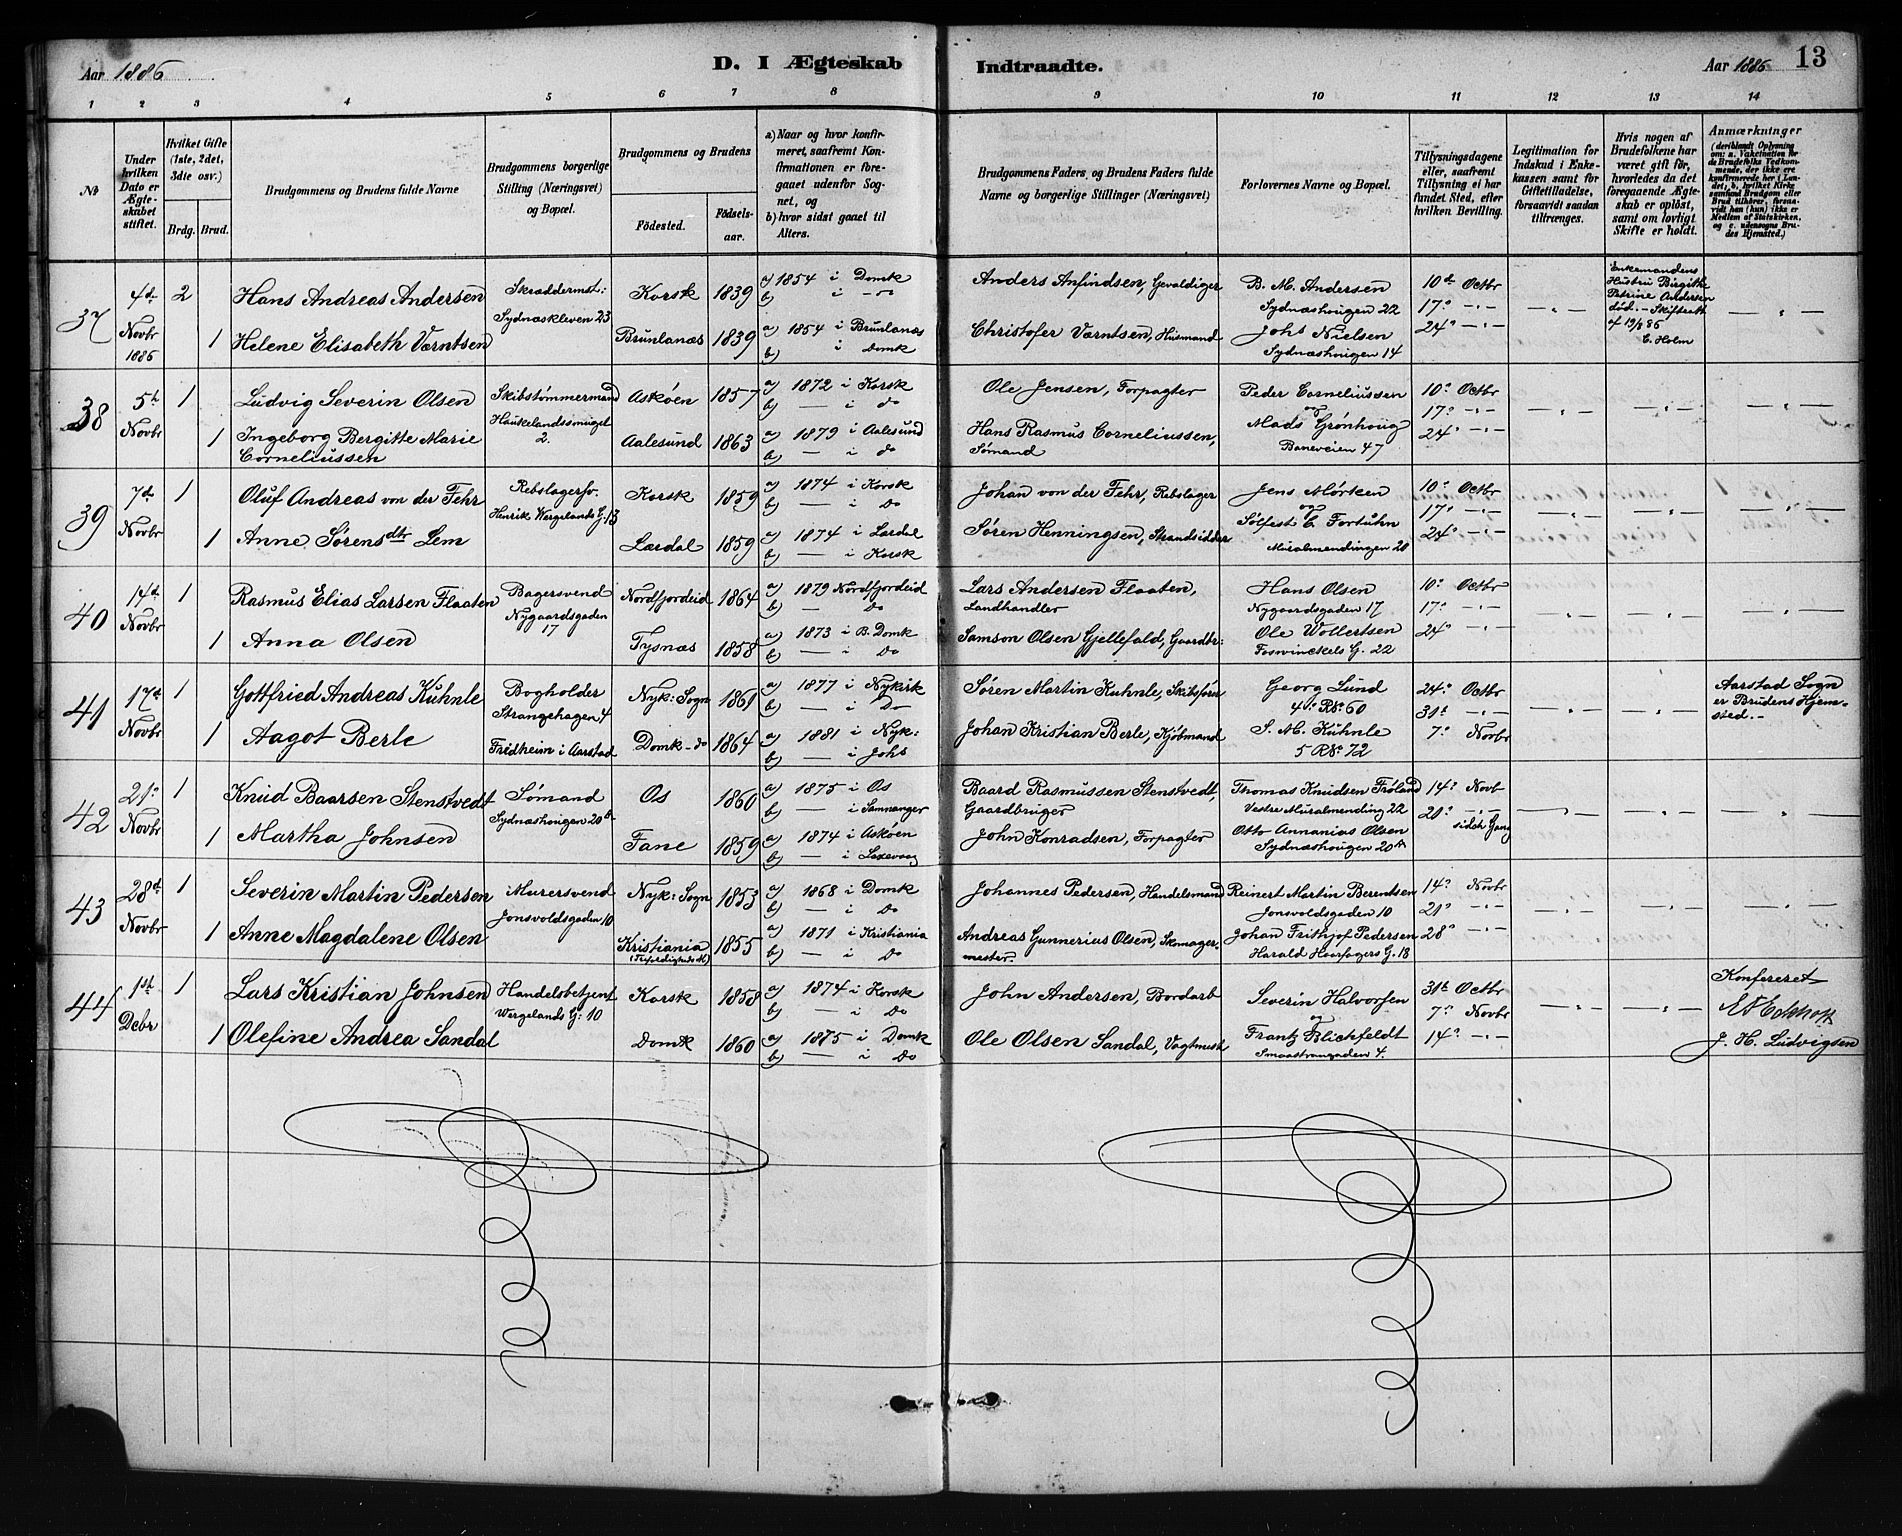 Aar 1886
D. I Ægteskab
Indtraadte.
Aar 1886
13
1 2 3 4 5 6 7 8 9 10 11 12 13 14
No
Under hvilken Dato er Ægteskabet stiftet.
Hvilket Gifte (1ste, 2det, 3die osv.)
Brdg. Brud.
Brudgommens og Brudens fulde Navne
Brudgommens borgerlige Stilling (Næringsvei) og Bopæl.
Brudgommens og Brudens
Fødested.
Fødselsaar.
a) Naar og hvor konfirmeret, saafremt Konfirmationen er foregaaet udenfor Sognet, og
b) hvor sidst gaaet til Alters.
Brudgommens Faders, og Brudens Faders fulde Navne og borgerlige Stillinger (Næringsvei)
Forlovernes Navne og Bopæl.
Tillysningsdagene eller, saafremt Tillysning ei har fundet Sted, efter hvilken Bevilling.
Legitimation for Indskud i Enkekassen samt for Giftetilladelse, forsaavidt saadan tiltrænges.
Hvis nogen af Brudefolkene har været gift før, hvorledes da det foregaaende Ægteskab er opløst, samt om lovligt Skifte er holdt.
Anmærkninger
37
4de Novbr 1886
2
Hans Andreas Andersen
Skræddermst:
Sydnæskleven 23
Korsk
1839
a) 1854 i Domk
b) i do
Anders Anfindsen, Gevaldiger
B. M. Andersen
Sydnæshougen 22
10de Octbr
17
24
Enkemandens
Hustru Birgithe
Petrine Andersen
død. - Skifteratt
af 19/8 86
C. Holm
1
Helene Elisabeth Værntsen
Brunlanæs
1839
a) 1854 i Brunlanæs
b) i Domk
Christofer Værntsen, Husmand
Johs Nielsen
Sydnæshougen 14
38
5te Novbr
1
Ludvig Severin Olsen
Skibstømmermand
Haukelandssmuget
2.
Askøen
1857
a) 1872 i Korsk
b) — i do
Ole Jensen, Forpagter
Peder Corneliussen
og
Mads Grønhoug
Baneveien 47
10 Octbr
17
24
1
Ingeborg Bergitte Marie
Corneliussen
Aalesund
1863
a) 1879 i Aalesund
b) — i do
Hans Rasmus Corneliussen,
Sømand
39
7de Novbr
1
Oluf Andreas von der Fehr
Rebslagersv.
Henrik Wergelands G. 13
Korsk
1859
a) 1874 i Korsk
b) — i Do
Johan von der Fehr, Rebslager
Jens Mørken
og
Sølfest E Fortuhn
Muralmendingen 20
10 Octbr
17
24
1
Anne Sørensdtr Lem
Lærdal
1859
a) 1874 i Lærdal
b) — i Korsk
Søren Henningsen, Strandsidder
40
14de Novbr
1
Rasmus Elias Larsen Flaaten
Bagersvend
Nygaardsgaden
17
Nordfjordeid
1864
a) 1879 Nordfjordeid
b) — Do
Lars Andersen Flaaten,
Landhandler
Hans Olsen
Nygaardsgaden 17
10 Octbr
17
24
1
Anna Olsen
Tysnæs
1858
a) 1873 i B. Domk
b) — i Do
Samson Olsen Gjellefald, Gaardbr:
Ole Wollertsen
Fosvinckels G. 22
41
17de Novbr
1
Gottfried Andreas Kuhnle
Bogholder
Strangehagen 4
Nyk: Sogn
1861
a) 1877 i Nykirk
b) — i Do
Søren Martin Kuhnle, Skibsfører
Georg Lund
4de R No 60
24 Octbr
31te
7 Novbr
Aarstad Sogn
er Brudens Hjem-
sted. -
1
Aagot Berle
Fredheim i Aarstad
Domk - do
1864
a) 1881 i Nyk:
b) — i Johs
Johan Kristian Berle, Kjøbmand
S. M. Kuhnle
5 R No 72
42
21 Novbr
1
Knud Baarsen Stenstvedt
Sømand
Sydnæshougen 20
Os
1860
a) 1875 i Os
b) — i Samnanger
Baard Rasmussen Stenstvedt,
Gaardbruger
Thomas Knudsen Frøland
Vestre Muralmending 22
14 Novb
21
sidste Gang
1
Martha Johnsen
Fane
1859
a) 1874 i Askøen
b) — i
John Konradsen, Forpagter
Otto Annanias Olsen
Sydnæshougen 20
43
28de Novbr
1
Severin Martin Pedersen
Murersvend
Jonsvoldsgaden 10
Nyk: Sogn
1853
a) 1868 i Domk
b) — i Do
Johannes Pedersen, Handelsmand
Reinert Martin Berentsen
Jonsvoldsgaden 10
14 Novbr
21
28
1
Anne Magdalene Olsen
Kristiania
1855
a) 1871 i Kristiania
b) — i Do
Andreas Gunnerius Olsen, Skomager-
mester.
Johan Frithjof Pedersen
Harald Haarfagers G. 18
44
1ste Debr
1
Lars Kristian Johnsen
Handelsbetjent
Wergelands G: 10
Korsk
1858
a) 1874 i Korsk
b) — i Do
John Andersen, Bordarb
Severin Halvorsen
og
Frantz Blichfeldt
Smaastrangaden 4.
31te Octbr
7 Novbr
14
Konfereret
J. H. Ludvigsen
1
Olefine Andrea Sandal
Domk
1860
a) 1875 i Domk
b) — i Do
Ole Olsen Sandal, Vagtmest